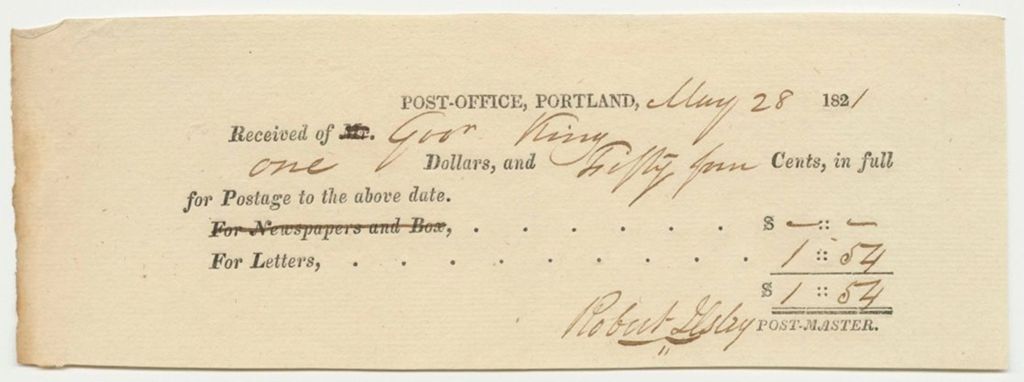 POST-OFFICE, PORTLAND, May 28 1821
Received of Mr. Govr. King
one Dollars, and Fifty four Cents, in full
for Postage to the above date.
For Newspapers and Box, . . . . . . $ — :: —
For Letters, . . . . . . . . . 1 :: 54
$ 1 :: 54
Robert Ilsley POST-MASTER.